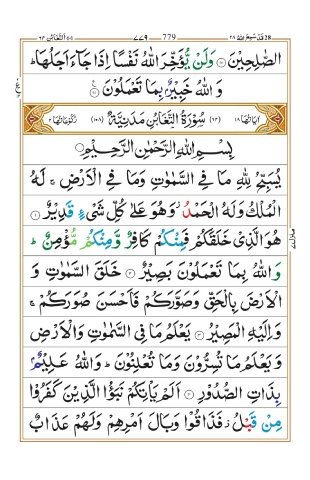 قد سمع الله ٢٨ ٧٧٩ 779 التغابن ٦٤
الصّٰلِحِيْنَ ۝١٠ وَلَنْ يُّؤَخِّرَ اللّٰهُ نَفْسًا اِذَا جَآءَ اَجَلُهَا ؕ
وَ اللّٰهُ خَبِيْرٌۢ بِمَا تَعْمَلُوْنَ ۝١١
اٰيَاتُهَا ١٨ سُوْرَةُ التَّغَابُنِ مَدَنِيَّةٌ (١٠٨) رُكُوْعَاتُهَا ٢
بِسْمِ اللّٰهِ الرَّحْمٰنِ الرَّحِيْمِ
يُسَبِّحُ لِلّٰهِ مَا فِي السَّمٰوٰتِ وَمَا فِي الْاَرْضِ ۚ لَهُ
الْمُلْكُ وَلَهُ الْحَمْدُ ؗ وَهُوَ عَلٰى كُلِّ شَيْءٍ قَدِيْرٌ ۝١
هُوَ الَّذِيْ خَلَقَكُمْ فَمِنْكُمْ كَافِرٌ وَّمِنْكُمْ مُّؤْمِنٌ ؕ
وَاللّٰهُ بِمَا تَعْمَلُوْنَ بَصِيْرٌ ۝٢ خَلَقَ السَّمٰوٰتِ وَ
الْاَرْضَ بِالْحَقِّ وَصَوَّرَكُمْ فَاَحْسَنَ صُوَرَكُمْ ۚ
وَاِلَيْهِ الْمَصِيْرُ ۝٣ يَعْلَمُ مَا فِي السَّمٰوٰتِ وَالْاَرْضِ
وَيَعْلَمُ مَا تُسِرُّوْنَ وَمَا تُعْلِنُوْنَ ؕ وَاللّٰهُ عَلِيْمٌۢ
بِذَاتِ الصُّدُوْرِ ۝٤ اَلَمْ يَاْتِكُمْ نَبَؤُا الَّذِيْنَ كَفَرُوْا
مِنْ قَبْلُ ؗ فَذَاقُوْا وَبَالَ اَمْرِهِمْ وَلَهُمْ عَذَابٌ